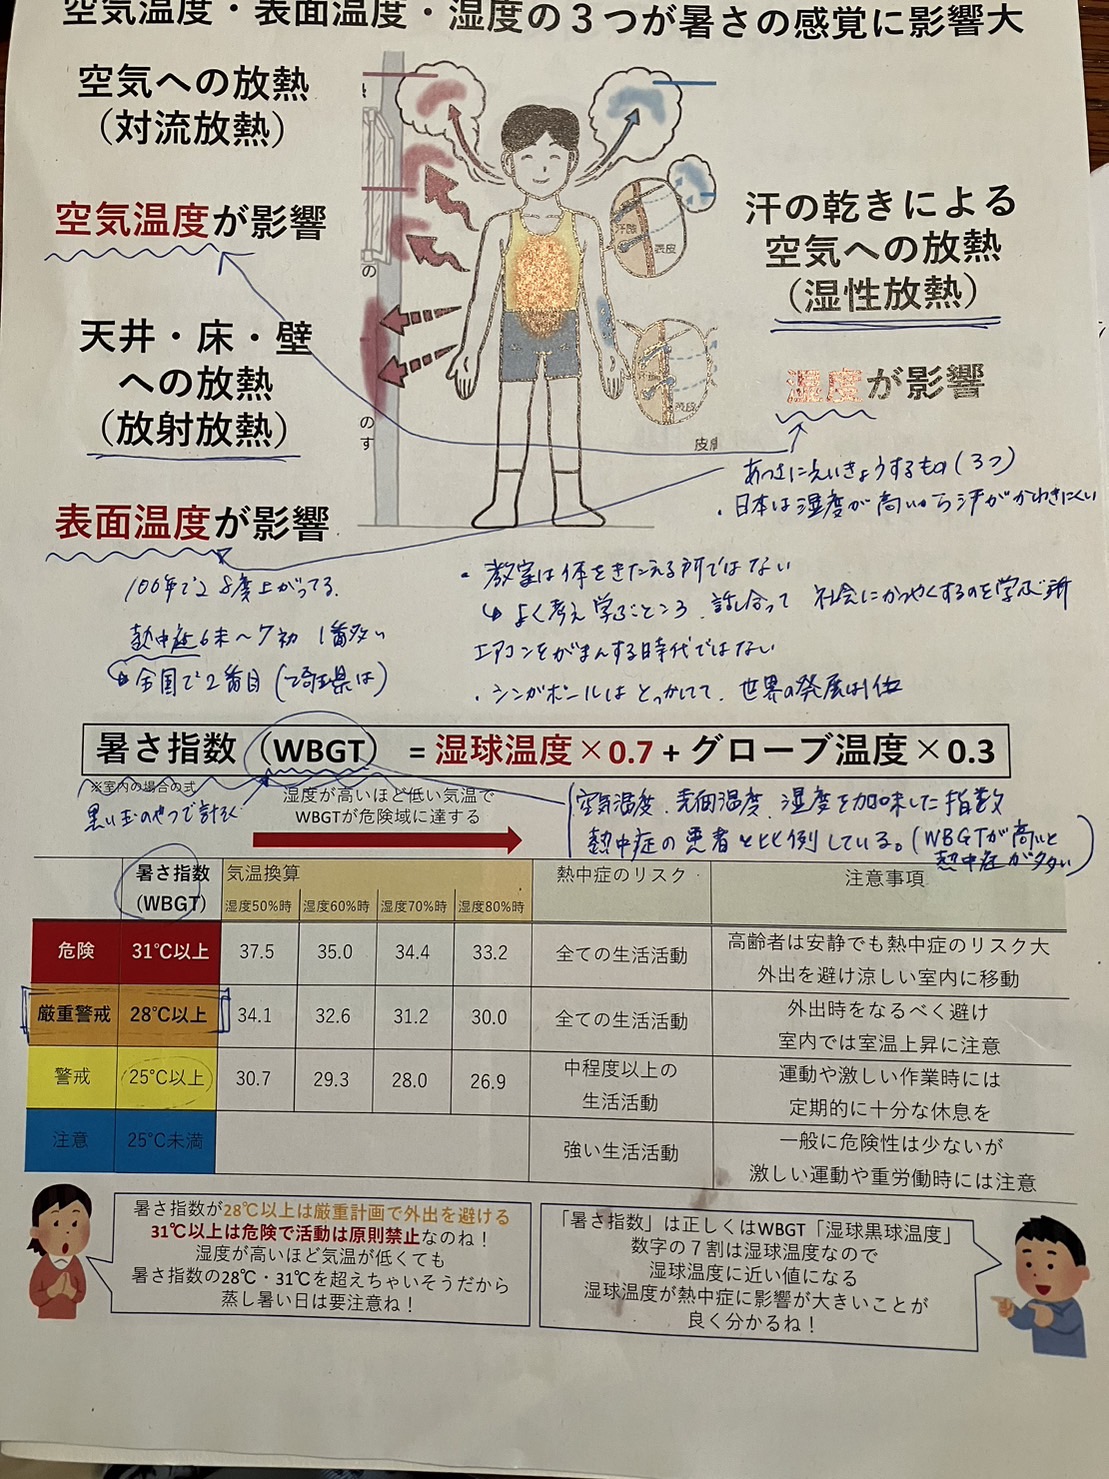 空気温度・表面温度・湿度の３つが暑さの感覚に影響大
空気への放熱
（対流放熱）
空気温度が影響
天井・床・壁
への放熱
（放射放熱）
表面温度が影響
の
のす
汗腺
表皮
汗の乾きによる
空気への放熱
（湿性放熱）
湿度が影響
あつさにえいきょうするもの（３つ）
・日本は湿度が高いから汗がかわきにくい
100年で2.8度上がってる
熱中症6末〜7初 1番多い
全国で2番目（埼玉県は）
・教室は体をきたえる所ではない
↳よく考え学ぶところ 話し合って 社会にかつやくするのを学ぶ所
エアコンをがまんする時代ではない
・シンガポールは とっかしてて 世界の発展は1位
暑さ指数（WBGT）＝湿球温度×0.7＋グローブ温度×0.3
※室内の場合の式
黒い玉のやつで計そく
湿度が高いほど低い気温で
WBGTが危険域に達する
空気温度、表面温度、湿度を加味した指数
熱中症の患者と比例している。（WBGTが高いと
熱中症が多い）
暑さ指数（WBGT） 気温換算 熱中症のリスク 注意事項
湿度50%時 湿度60%時 湿度70%時 湿度80%時
危険 31℃以上 37.5 35.0 34.4 33.2 全ての生活活動 高齢者は安静でも熱中症のリスク大
外出を避け涼しい室内に移動
厳重警戒 28℃以上 34.1 32.6 31.2 30.0 全ての生活活動 外出時をなるべく避け
室内では室温上昇に注意
警戒 25℃以上 30.7 29.3 28.0 26.9 中程度以上の生活活動 運動や激しい作業時には
定期的に十分な休息を
注意 25℃未満 強い生活活動 一般に危険性は少ないが
激しい運動や重労働時には注意
暑さ指数が28℃以上は厳重計画で外出を避ける
31℃以上は危険で活動は原則禁止なのね！
湿度が高いほど気温が低くても
暑さ指数の28℃・31℃を超えちゃいそうだから
蒸し暑い日は要注意ね！
「暑さ指数」は正しくはWBGT「湿球黒球温度」
数字の７割は湿球温度なので
湿球温度に近い値になる
湿球温度が熱中症に影響が大きいことが
良く分かるね！